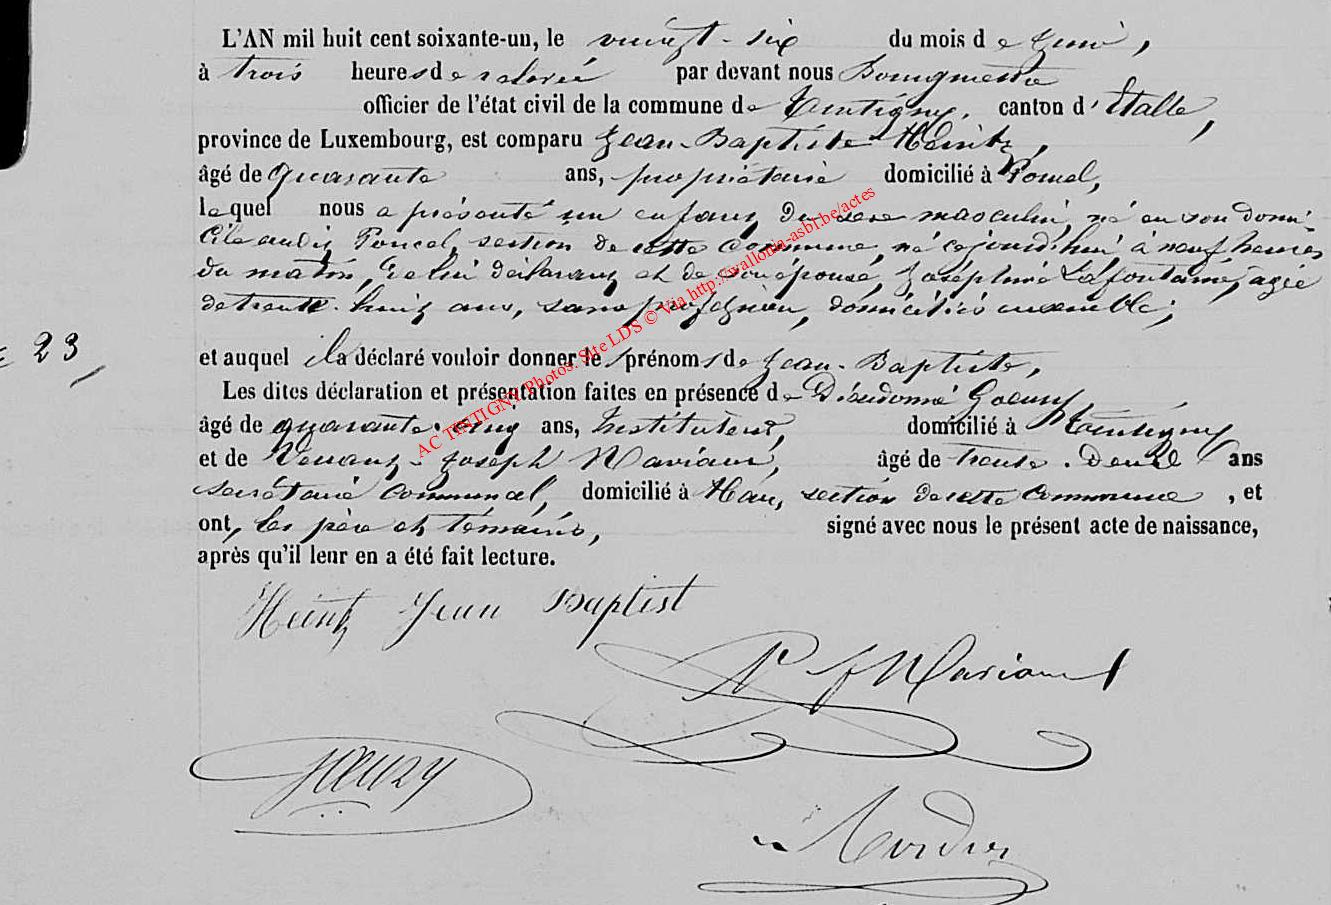 L'AN mil huit cent soixante-un, le vingt-six du mois de Juin,
à trois heures de relevée par devant nous Bourgmestre
officier de l'état civil de la commune de Tintigny, canton d'Etalle,
province de Luxembourg, est comparu Jean-Baptiste Heintz,
âgé de quarante ans, propriétaire domicilié à Poncel,
lequel nous a présenté un enfant du sexe masculin, né en son domi-
cile audit Poncel, section de cette commune, né cejourd'hui, à neuf heures
du matin, de lui déclarant et de son épouse, Joséphine Lafontaine, agée
de trente-huit ans, sans profession, domiciliés ensemble,
Nº 23
et auquel il a déclaré vouloir donner les prénoms de Jean-Baptiste,
Les dites déclaration et présentation faites en présence de Dieudonné Goeury,
âgé de quarante-cinq ans, Instituteur, domicilié à Tintigny
et de Venant-Joseph Mariaux, âgé de trente-deux ans
secrétaire communal, domicilié à Han, section de cette commune, et
ont, les père et témoins, signé avec nous le présent acte de naissance,
après qu'il leur en a été fait lecture.
Heintz Jean Baptist
V J Mariaux
Goeury
AC TINTIGNY Photos. Site LDS © Via http://wallonia-asbl.be/actes